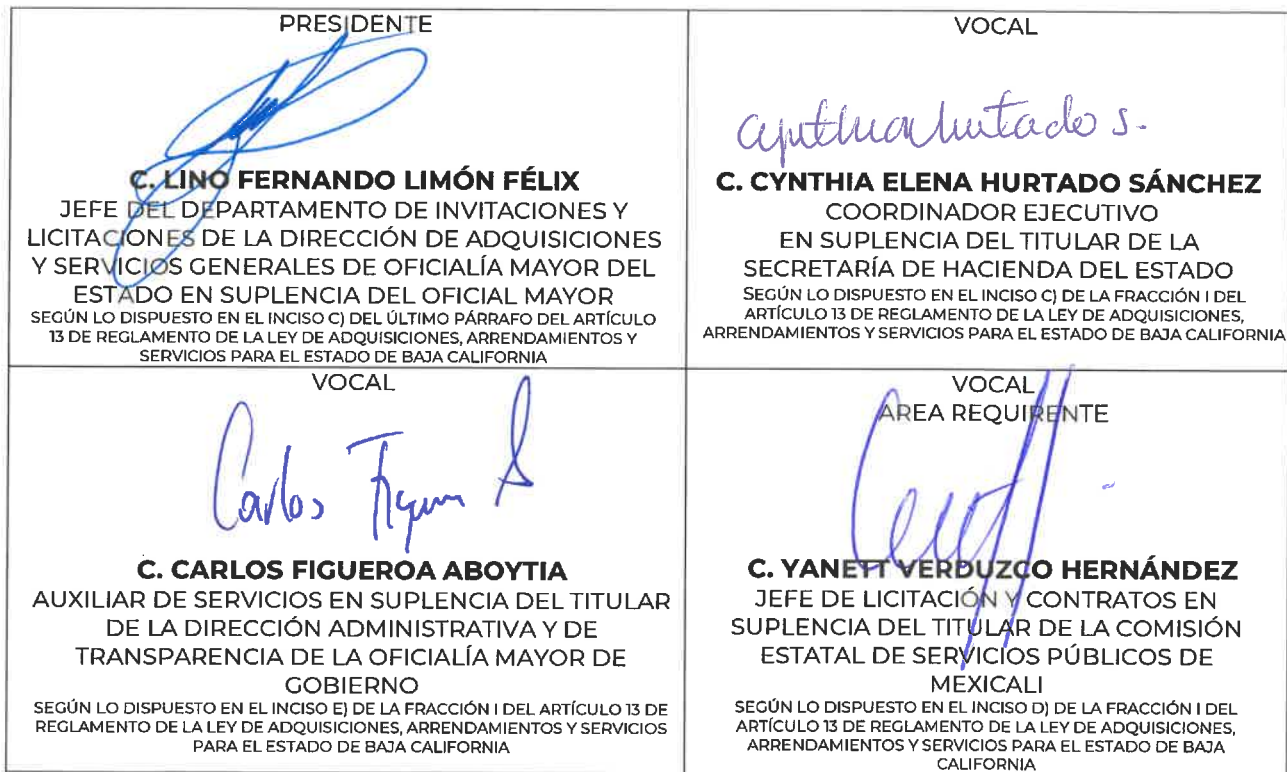 PRESIDENTE
C. LINO FERNANDO LIMÓN FÉLIX
JEFE DEL DEPARTAMENTO DE INVITACIONES Y
LICITACIONES DE LA DIRECCIÓN DE ADQUISICIONES
Y SERVICIOS GENERALES DE OFICIALÍA MAYOR DEL
ESTADO EN SUPLENCIA DEL OFICIAL MAYOR
SEGÚN LO DISPUESTO EN EL INCISO C) DEL ÚLTIMO PÁRRAFO DEL ARTÍCULO
13 DE REGLAMENTO DE LA LEY DE ADQUISICIONES, ARRENDAMIENTOS Y
SERVICIOS PARA EL ESTADO DE BAJA CALIFORNIA
VOCAL
Cynthia Hurtado S.
C. CYNTHIA ELENA HURTADO SÁNCHEZ
COORDINADOR EJECUTIVO
EN SUPLENCIA DEL TITULAR DE LA
SECRETARÍA DE HACIENDA DEL ESTADO
SEGÚN LO DISPUESTO EN EL INCISO C) DE LA FRACCIÓN I DEL
ARTÍCULO 13 DE REGLAMENTO DE LA LEY DE ADQUISICIONES,
ARRENDAMIENTOS Y SERVICIOS PARA EL ESTADO DE BAJA CALIFORNIA
VOCAL
Carlos Figueroa A
C. CARLOS FIGUEROA ABOYTIA
AUXILIAR DE SERVICIOS EN SUPLENCIA DEL TITULAR
DE LA DIRECCIÓN ADMINISTRATIVA Y DE
TRANSPARENCIA DE LA OFICIALÍA MAYOR DE
GOBIERNO
SEGÚN LO DISPUESTO EN EL INCISO E) DE LA FRACCIÓN I DEL ARTÍCULO 13 DE
REGLAMENTO DE LA LEY DE ADQUISICIONES, ARRENDAMIENTOS Y SERVICIOS
PARA EL ESTADO DE BAJA CALIFORNIA
VOCAL
AREA REQUIRENTE
C. YANETT VERDUZCO HERNÁNDEZ
JEFE DE LICITACIÓN Y CONTRATOS EN
SUPLENCIA DEL TITULAR DE LA COMISIÓN
ESTATAL DE SERVICIOS PÚBLICOS DE
MEXICALI
SEGÚN LO DISPUESTO EN EL INCISO D) DE LA FRACCIÓN I DEL
ARTÍCULO 13 DE REGLAMENTO DE LA LEY DE ADQUISICIONES,
ARRENDAMIENTOS Y SERVICIOS PARA EL ESTADO DE BAJA
CALIFORNIA